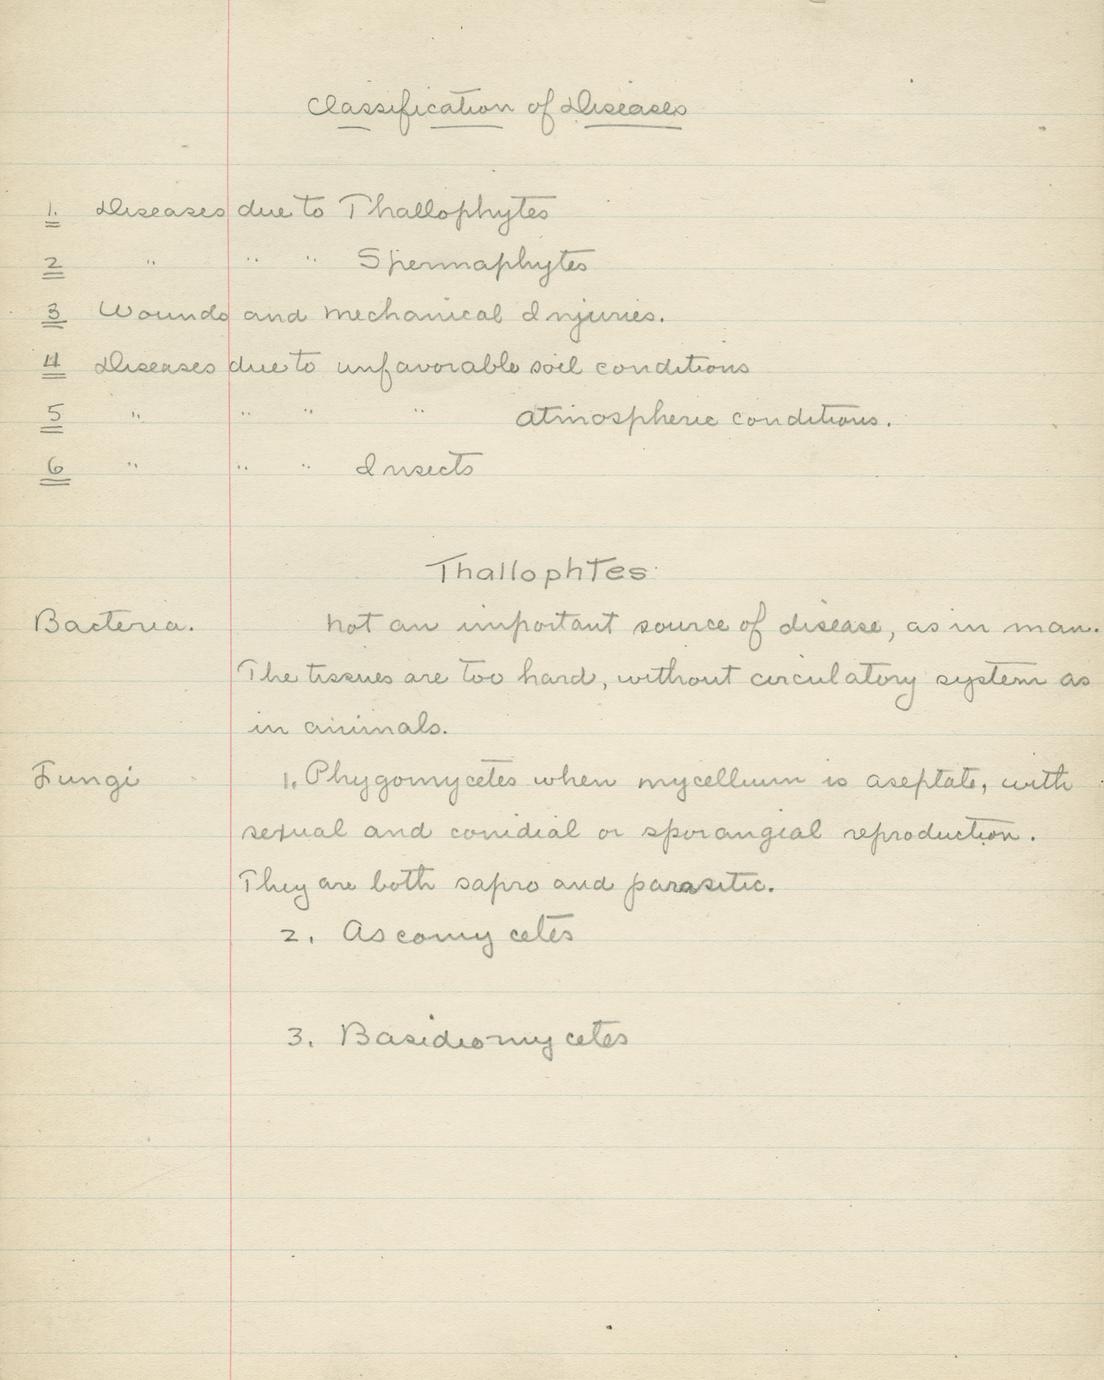 Classification of Diseases
1. Diseases due to Thallophytes
2 " " " Spermaphytes
3 Wounds and mechanical Injuries.
4 Diseases due to unfavorable soil conditions
5 " " " " atmospheric conditions.
6 " " " Insects
Thallophtes
Bacteria. not an important source of disease, as in man.
The tissues are too hard, without circulatory system as
in animals.
Fungi 1. Phygomycetes when mycellium is aseptate, with
sexual and conidial or sporangial reproduction.
They are both sapro and parasitic.
2. Ascomycetes
3. Basidiomycetes